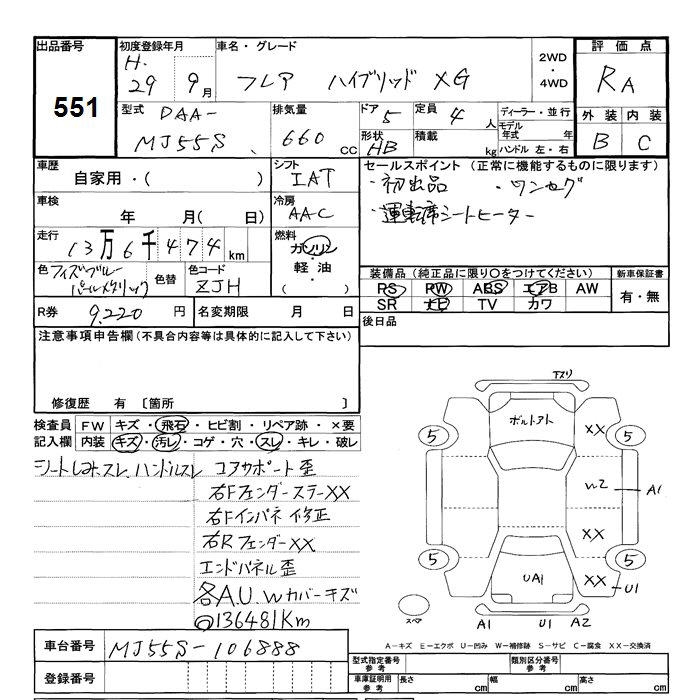 出品番号
551
初度登録年月
H.
29 9月
車名・グレード
フレア ハイブリッド XG
2WD
・
4WD
評価点
RA
外装 内装
B C
型式
DAA-
MJ55S
排気量
660 CC
ドア
5
形状
HB
定員
4 人
積載
kg
ディーラー・並行
モデル年式 年
ハンドル 左・右
車歴
自家用・( )
シフト
IAT
車検
年 月( 日)
冷房
AAC
走行
13万6千474km
燃料
ガソリン
・
軽油
・
( )
色
フィズブルー
パールメタリック
色替
色コード
ZJH
R券
9,220 円
名変期限 月 日
セールスポイント (正常に機能するものに限ります)
・初出品 ・ワンセグ
・運転席シートヒーター
装備品(純正品に限り○をつけてください)
RS PW ABS エアB AW
SR ナビ TV カワ
新車保証書
有・無
後日品
注意事項申告欄(不具合内容等は具体的に記入して下さい)
修復歴 有 〔箇所 〕
検査員記入欄
FW キズ・飛石・ヒビ割・リペア跡・×要
内装 キズ・汚レ・コゲ・穴・スレ・キレ・破レ
シートしみスレ、ハンドルスレ
コアサポート歪
右Fフェンダーステー××
右Fインパネ修正
右Rフェンダー××
エンドパネル歪
各A.U.Wカバーキズ
◎136481Km
車台番号
MJ55S-106888
登録番号
下スリ
ボルトアト
5 ×× 5
W2 A1
××
5 ×× 5
UA1
U1
スペア
A1 U1 A2
A-キズ E-エクボ U-凹み W-補修跡 S-サビ C-腐食 XX-交換済
型式指定番号
参考
類別区分番号
参考
車庫証明用
参考
長さ cm
幅 cm
高さ cm